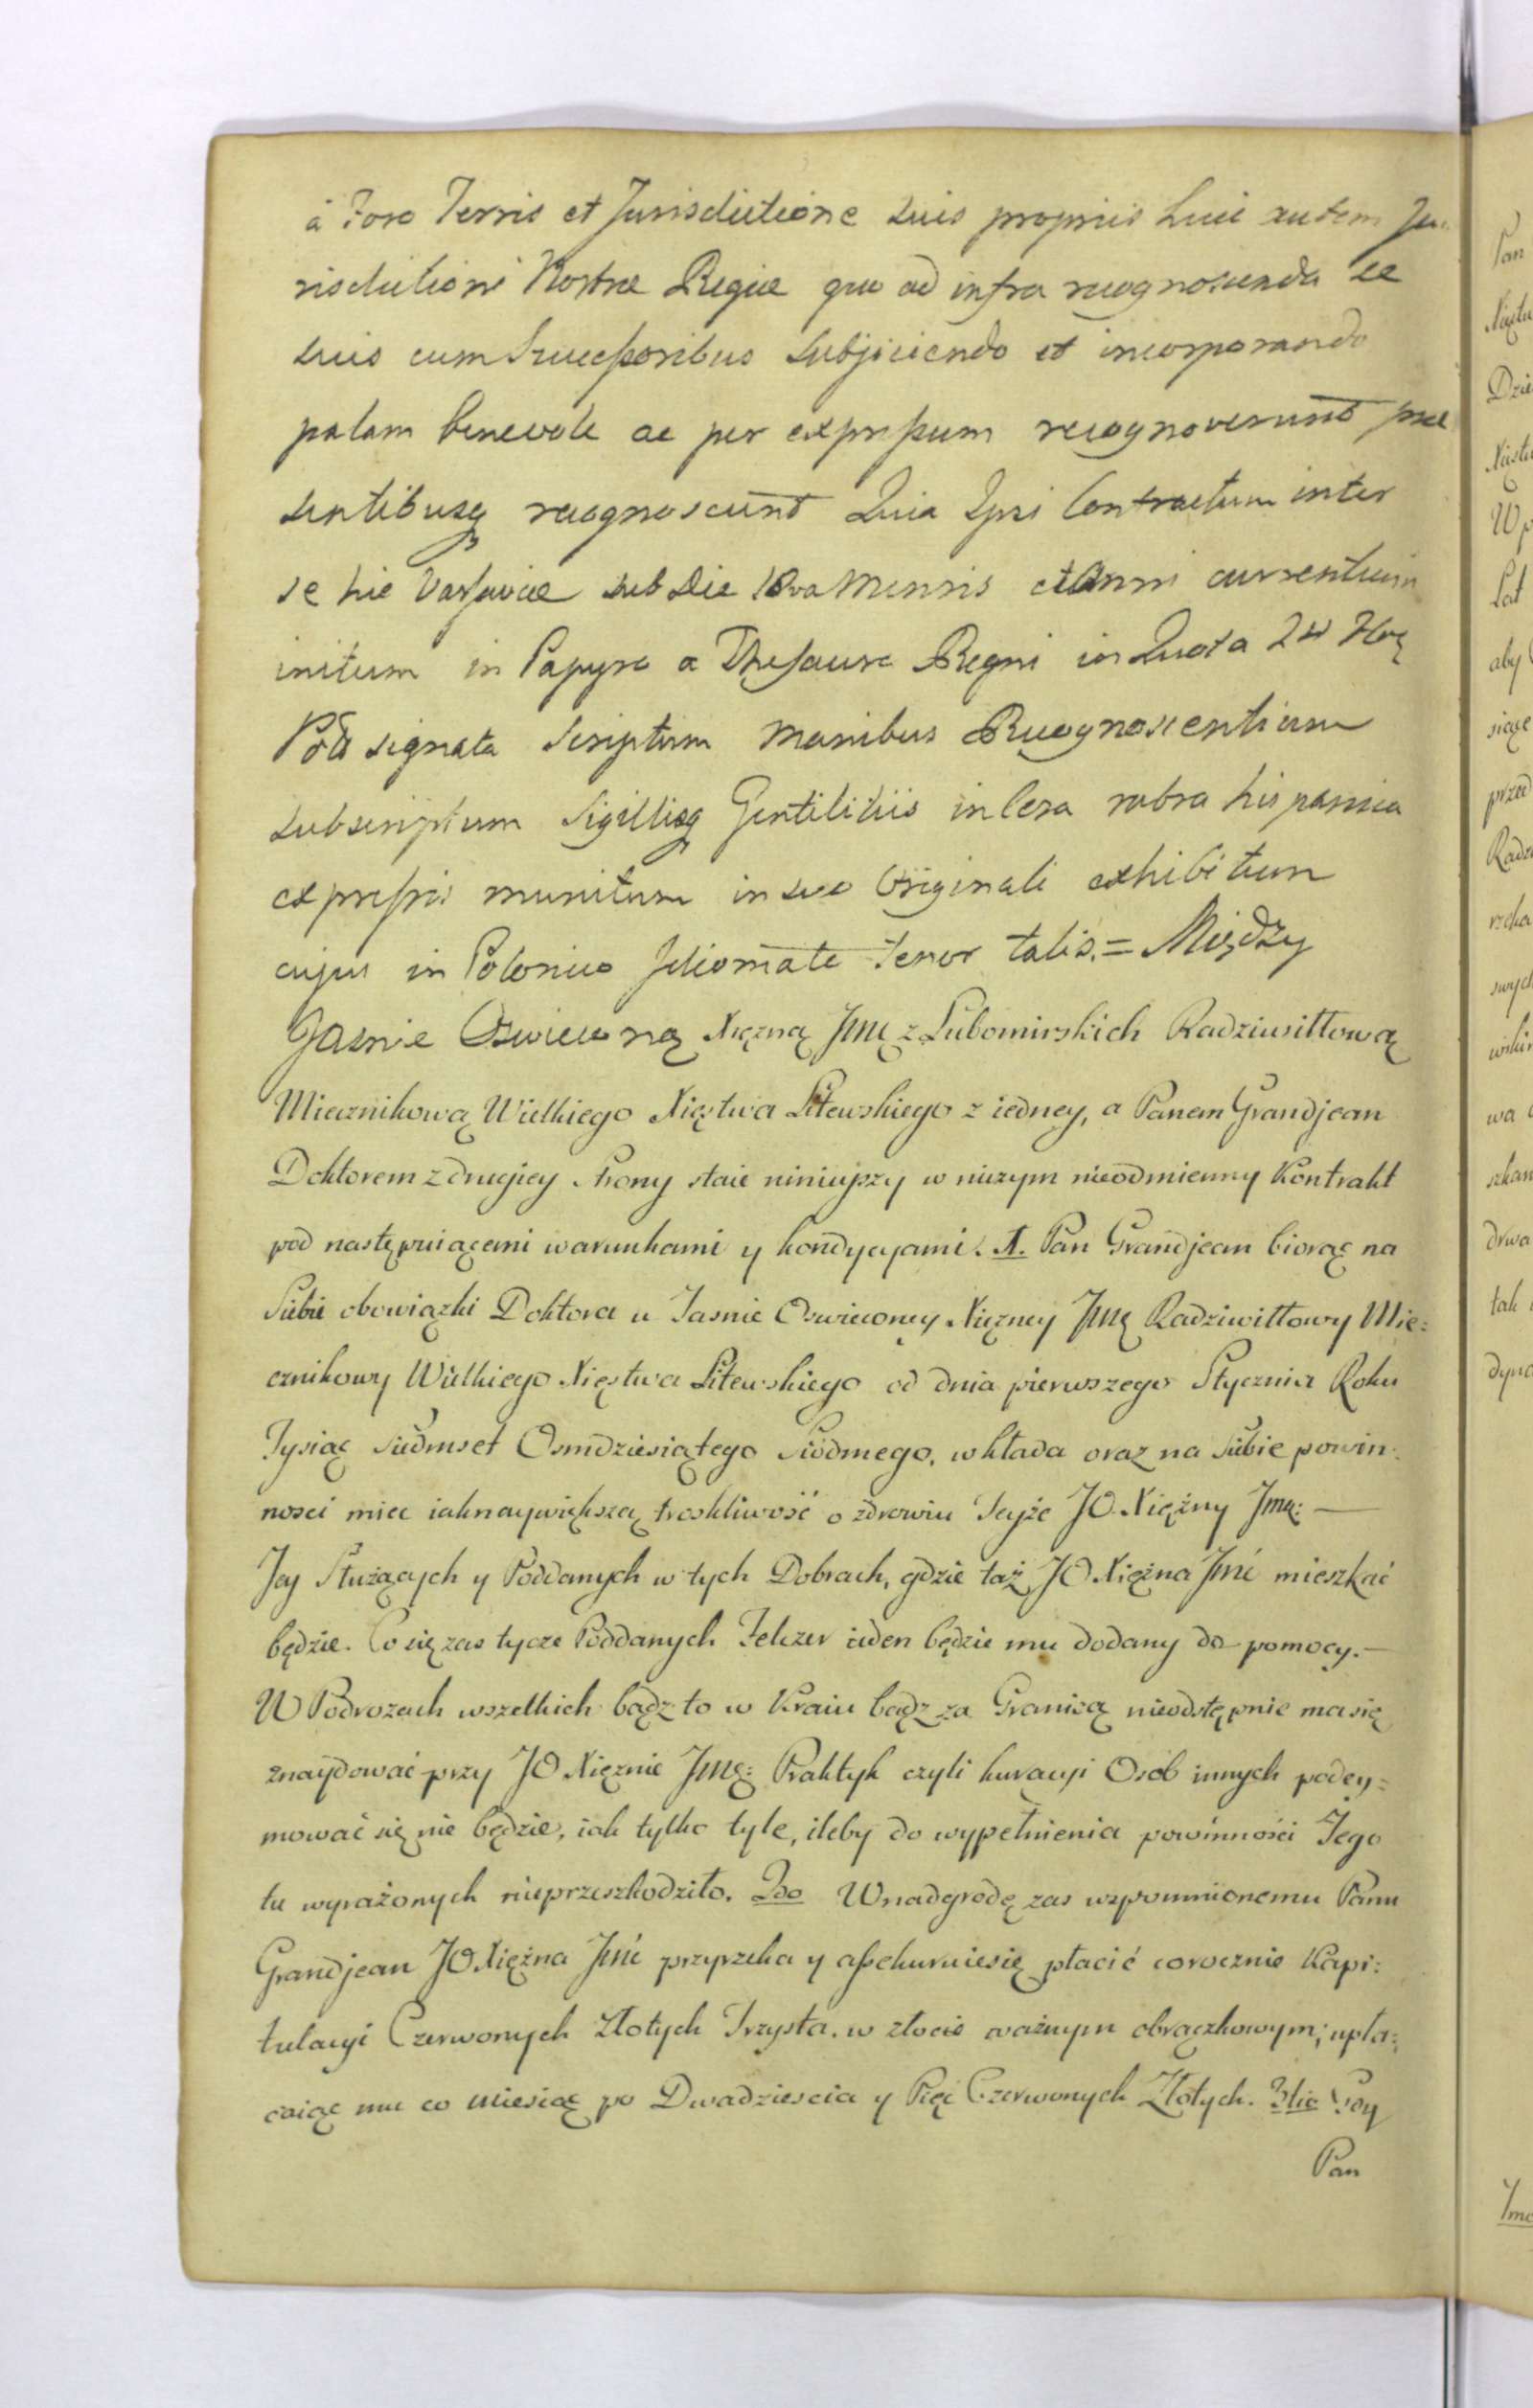 à Foro Terris et Jurisdictione suis propriis huic autem Ju
risdictioni Nostræ Regiæ quo ad infra recognoscenda se
suis cum Successoribus subjiciendo et incorporando
palam benevole ac per expressum recognoverunt præ
sentibusq recognoscunt Quia Ipsi Contractum inter
se hic Varsaviæ sub Die 18va Mensis et Anni currentium
initum in Papyro a Thesauro Regni in Quota
signata Scriptum Manibus Recognoscentium
subscriptum Sigillisq Gentilitiis in Cera rubra hispanica
expressis munitum in suo Originali exhibitum
cujus in Polonico Idiomate tenor talis. = Między
Jasnie Oswieconą Xięzną Jmę z Lubomirskich Radziwiłłową
Miecznikową Wielkiego Xięstwa Litewskiego z iedney, a Panem Grandjean
Doktorem z drugiey strony staie ninieyszy w niczym nieodmienny Kontrakt
pod następuiącemi warunkami y kondycyami. 1. Pan Grandjean biorąc na
Siebie obowiązki Doktora u Jasnie Oswieconey Xięzney Jmę Radziwiłłowy Mie=
cznikowy Wielkiego Xięstwa Litewskiego od dnia pierwszego Stycznia Roku
Tysiąc siedmset Osmdziesiątego siódmego, wkłada oraz na siebie powin:
nosci miec iaknaywiększą troskliwość o zdrowiu Teyże JO. Xięźny Jmę: —
Jey Służących y Poddanych w tych Dobrach, gdzie taż JO Xięźna Jmć mieszkać
będzie. Co się zas tycze Poddanych Felczer ieden będzie mu dodany do pomocy. —
W Podrozach wszelkich bądz to w Kraiu bądz za Granicą nieodstępnie ma się
znaydować przy JO Xięznie Jmę: Praktyk czyli kuracyi Osób innych podey=
mować się nie będzie, iak tylko tyle, ileby do wypełnienia powinności Jego
tu wyrażonych nieprzeszkodziło. 2do Wnadgrodę zas wspomnionemu Panu
Grandjean JO Xięźna Jmć przyrzeka y assekuruiesię płacić corocznie Kapi:
tulacyi Czerwonych Złotych Trzysta. w złocie ważnym obrączkowym; upła:
caiąc mu co miesiąc po Dwadziescia y Pięć Czerwonych Złotych. 3tio Gdy
Pan